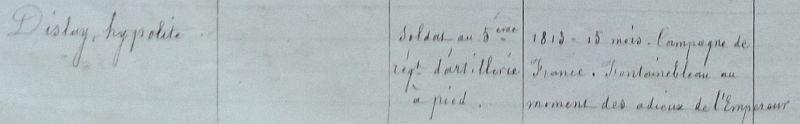 Dislay, hypolite. soldat au 5ème 1813 - 15 mois. Campagne de
régt d'artillerie France. Fontainebleau au
à pied. moment des adieux de l'Empereur